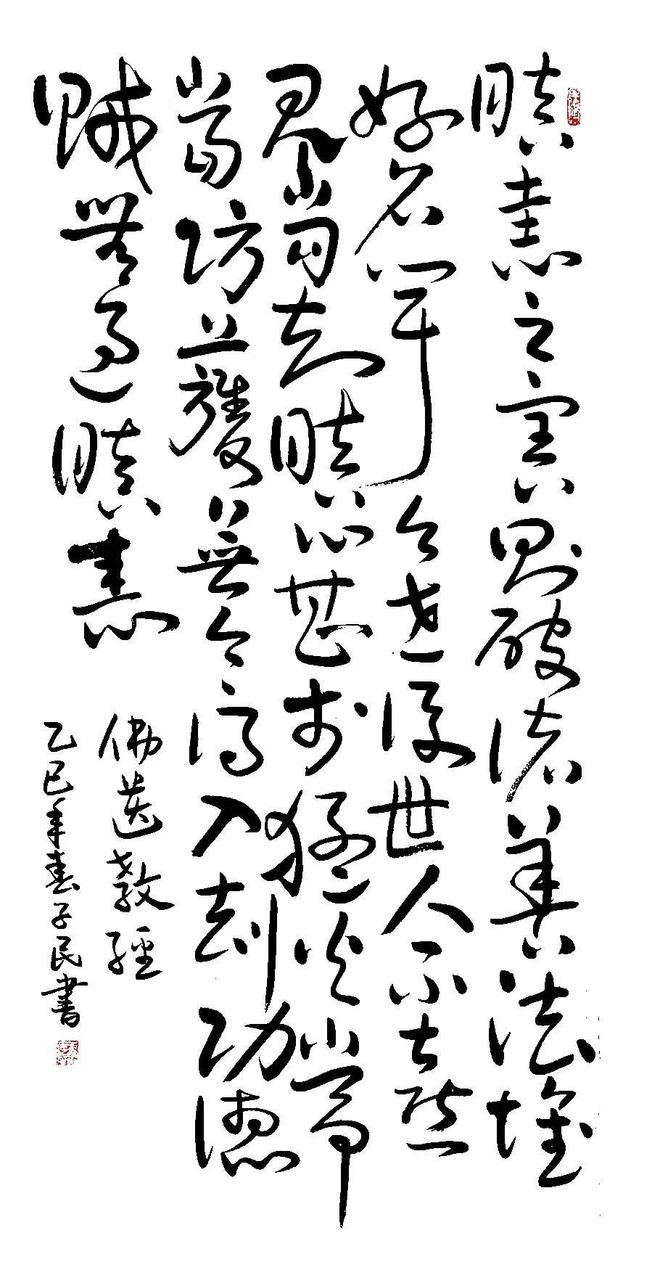 瞋恚之害則破諸善法壞
好名聞今世後世人不喜
見當知瞋心甚於猛火常
當防護無令得入劫功德
賊無過瞋恚
佛遺教經
乙巳年春子民書